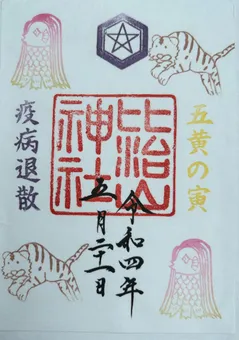 五黄の寅
比治山
神社
疫病退散
令和四年
五月二十一日